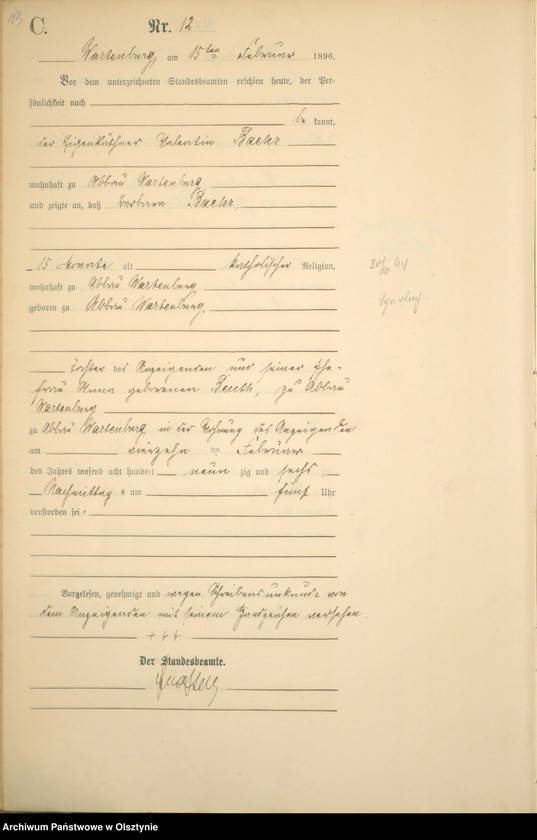 C. Nr. 12.
Wartenburg, am 15ten Februar 1896.
Vor dem unterzeichneten Standesbeamten erschien heute, der Per-
sönlichkeit nach
be kannt,
der Eigenkäthner Valentin Baehr
wohnhaft zu Abbau Wartenburg
und zeigte an, daß Barbara Baehr,
15 Monate alt katholischer Religion,
wohnhaft zu Abbau Wartenburg
geboren zu Abbau Wartenburg
Tochter des Anzeigenden und seiner Ehe-
frau Anna geborenen Beuth, zu Abbau
Wartenburg
zu Abbau Wartenburg in der Wohnung des Anzeigenden
am vierzehn ten Februar
des Jahres tausend acht hundert neun zig und sechs,
Nachmittag s um fünf Uhr
verstorben sei.
Vorgelesen, genehmigt und wegen Schreibensunkunde von
dem Anzeigenden mit seinem Handzeichen versehen.
+++
Der Standesbeamte.
Archiwum Państwowe w Olsztynie